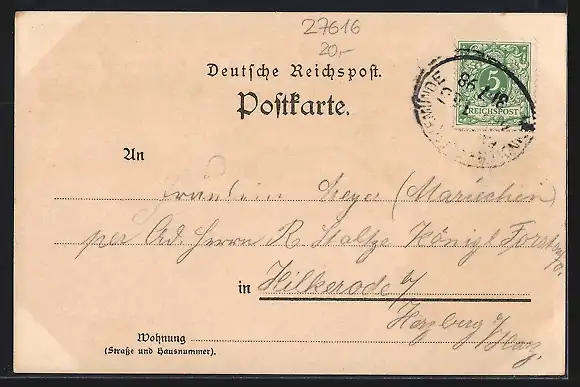 27616
20,-
Deutsche Reichspost.
Postkarte.
5
REICHSPOST
MÜNDE
An
Fräulein Meyer (Mariechen)
per Ad. Herrn R. Staltze Königl Forst
in Hilkerode b/
Herzberg a/
Harz.
Wohnung
(Straße und Hausnummer).